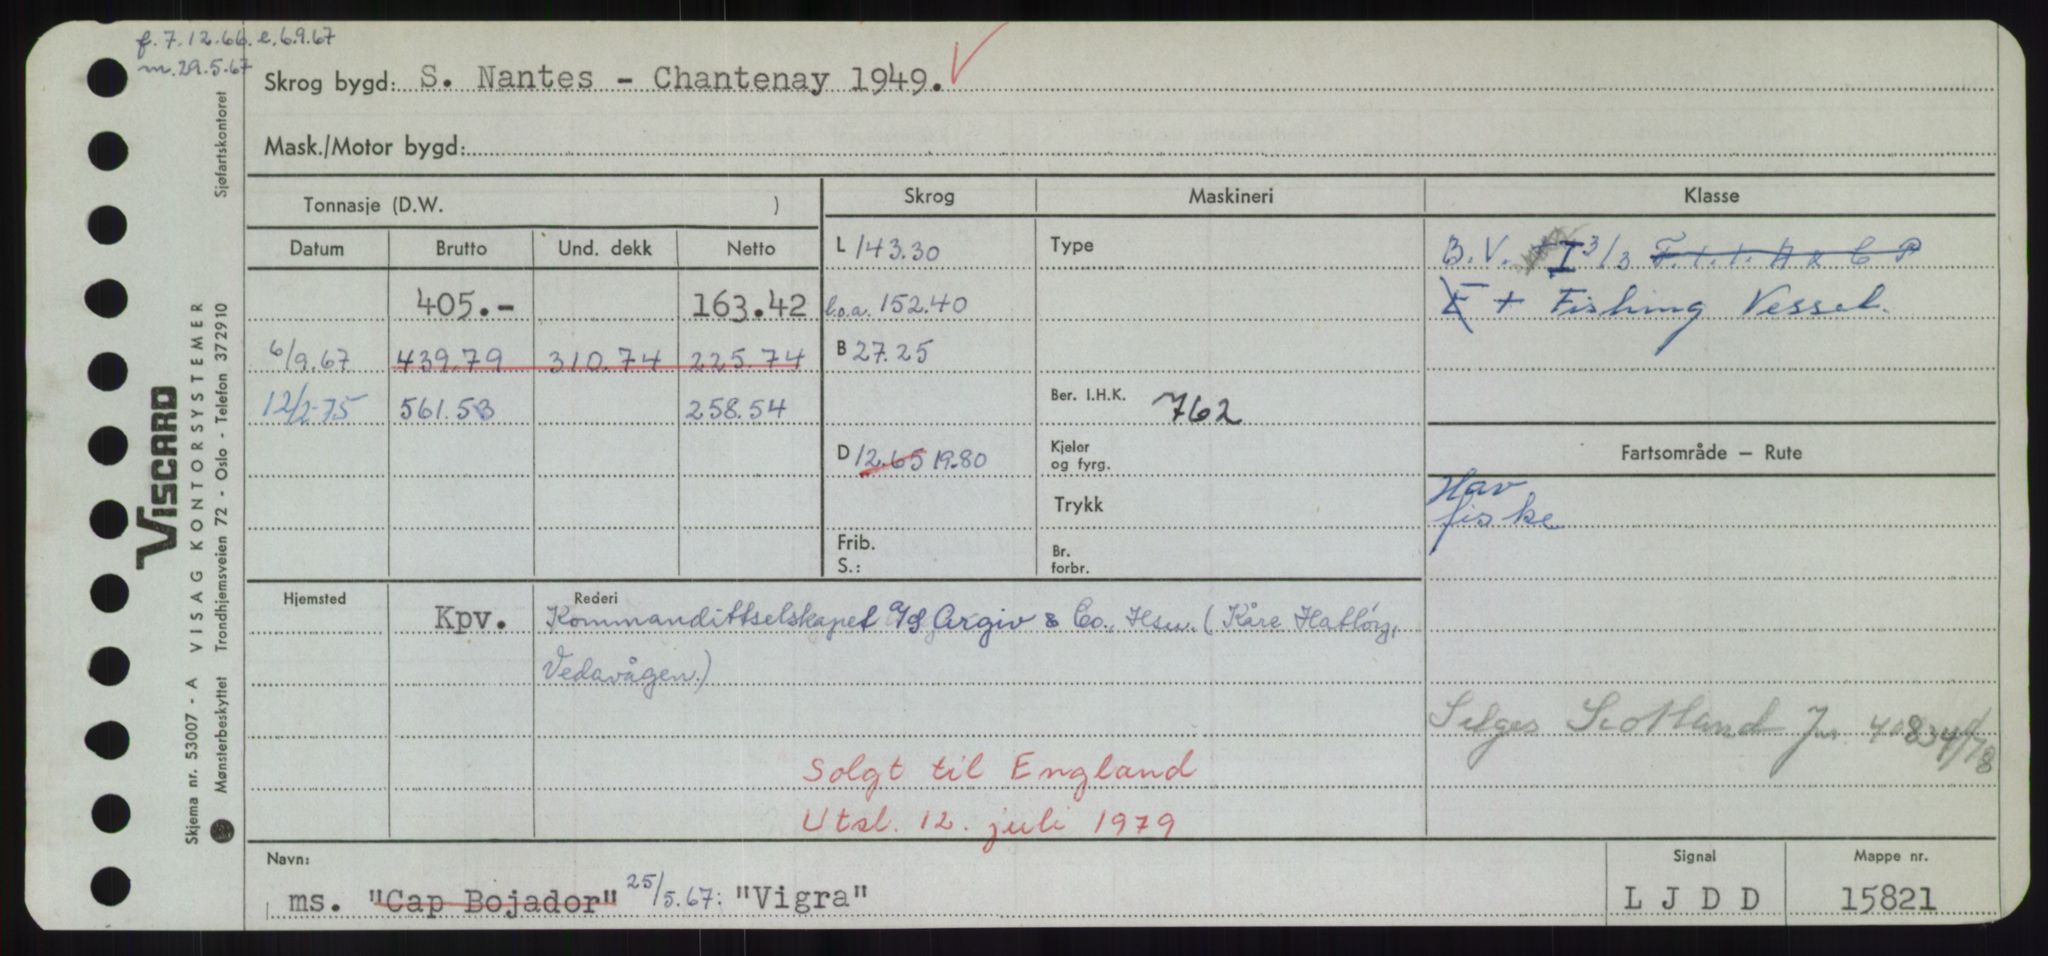 f. 7.12.66. e. 6.9.67
m. 29.5.67
Skrog bygd: S. Nantes - Chantenay 1949.
Mask./Motor bygd:
Tonnasje (D.W. )
Skrog
Maskineri
Klasse
Datum Brutto Und. dekk Netto
L 143.30
Type
B.V. I 3/3
405.- 163.42
l.o.a. 152.40
E + Fishing Vessel.
6/9.67 439.79 310.74 225.74
B 27.25
12/2-75 561.53 258.54
Ber. I.H.K. 762
D 12.65 19.80
Kjeler
og fyrg.
Fartsområde - Rute
Trykk
Hav
fiske
Frib.
S.:
Br.
forbr.
Hjemsted Rederi
Kpv. Kommandittselskapet A/S Argiv & Co., Hsu. (Kåre Hatløy,
Vedavågen.)
Selges Scotland Jnr. 40834/78
Solgt til England
Utsl. 12. juli 1979
Navn:
Signal
Mappe nr.
ms. "Cap Bojador" 25/5.67: "Vigra"
L J D D
15821
VISCARD
Skjema nr. 53007 - A VISAG KONTORSYSTEMER
Mønsterbeskyttet Trondhjemsveien 72 - Oslo - Telefon 372910 Sjøfartskontoret